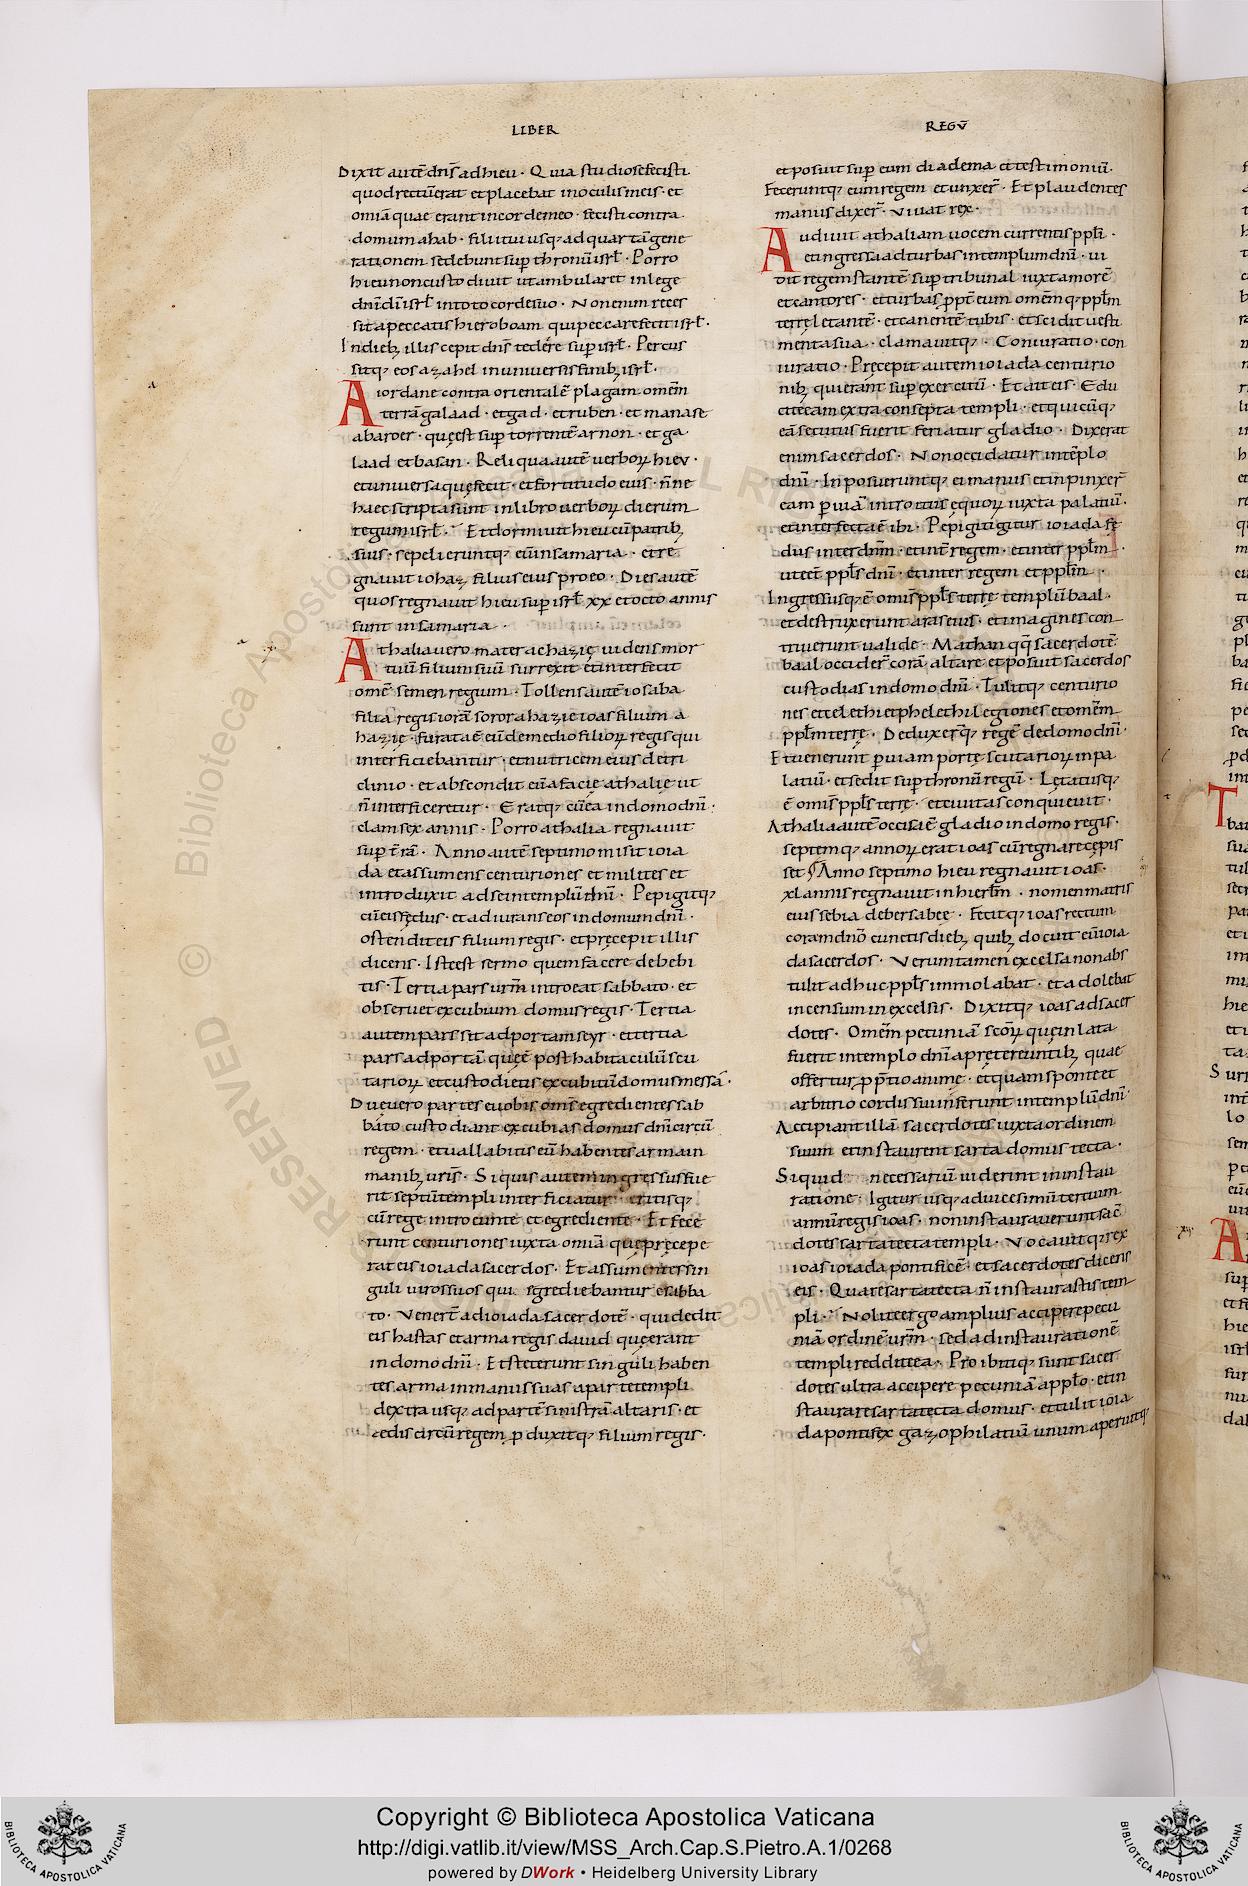 LIBER
Dixit autē dnꝭ ad hieu · Quia studiose fecisti
quod rectū erat et placebat in oculis meis · et
omīa quae erant in corde meo · fecisti contra
domum ahab · filii tui usq; ad quartā gene
rationem sedebunt sup̄ thronū isrƚ · Porro
hieu non custodiuit ut ambularet in lege
dnī dī isrƚ in toto corde suo · Non enim reces
sit a peccatis hieroboam qui peccare fecit isrƚ ·
In dieb; illis cepit dnꝭ tedére sup̄ isrƚ · Percus
sitq; eos azahel in uniuersis finib; isrƚ ·
A iordane contra orientalē plagam omēm
terrā galaad · et gad · et ruben · et manase
ab aroer · quę est sup̄ torrentē arnon · et ga
laad et basán · Reliqua autē uerboꝝ hieu ·
et uniuersa quę fecit · et fortitudo eius · n̄ne
haec scripta sunt in libro uerboꝝ dierum
regum isrƚ · Et dormiuit hieu cū patrib;
suis · sepelieruntq; eū in samaria · et re
gnauit iohaz filius eius pro eo · Dies autē
quos regnauit hieu sup̄ isrƚ xx et octo annis
sunt in samaria ·
Athalia uero mater achazię uidens mor
tuū filium suū surrexit et interfecit
omē semen regium · Tollens autē iosaba
filia regis iorā soror ahazię ioas filium a
hazię · furata ē eū de medio filioꝝ regis qui
interficiebantur · et nutricem eius de tri
clinio · et abscondit eū a facie athalię ut
n̄ interficeretur · Eratq; cū ea in domo dnī ·
clam sex annis · Porro athalia regnauit
sup̄ t̄rā · Anno autē septimo misit ioia
da et assumens centuriones et milites et
introduxit ad se in templū dnī · Pepigitq;
cū eis fędus · et adiurans eos in domum dnī ·
ostendit eis filium regis · et pręcepit illis
dicens · Iste est sermo quem facere debebi
tis · Tertia pars urm̄ introeat sabbato · et
obseruet excubium domus regis · Tertia
autem pars sit ad portam seyr · et tertia
pars ad portā quę ē post habitaculū scu
tarioꝝ et custodietis excubitū domus messā ·
Duę uero partes e uobis omꝭ egredientes sab
bato custodiant excubias domus dnī circū
regem · et uallabitis eū habentes arma in
manib; uriꝭ · Si quis autem ingressus fue
rit septū templi interficiatur · eritisq;
cū rege introeunte et egrediente · Et fece
runt centuriones iuxta omīa quę pręcepe
rat eis ioiada sacerdos · Et assumentes sin
guli uiros suos qui · egrediebantur e sabba
to · Venerꝉ ad ioiada sacerdotē · qui dedit
eis hastas et arma regis dauid quę erant
in domo dnī · Et steterunt singuli haben
tes arma in manus suas a parte templi
dextra usq; ad partē sinistrā altaris · et
aedis circū regem p̱duxitq; filium regis ·
REGŪ
et posuit sup̄ eum diadema et testimoniū ·
Feceruntq; eum regem et unxer̄ · Et plaudentes
manus dixer̄ · Viuat rex ·
Audiuit athaliam uocem currentis pp̄li ·
et ingressa ad turbas in templum dnī · ui
dit regem stantē sup̄ tribunal iuxta morē
et cantores · et turbas p̱pt̄ eum omēmq; pp̄lm
terrę letantē · et canentē tubis · et scidit uesti
menta sua · clamauitq; · Coniuratio · con
iuratio · Pręcepit autem ioiada centurio
nib; qui erant sup̄ exercitū · Et ait eis · Edu
cite eam extra consepta templi · et quicūq;
eā secutus fuerit feriatur gladio · Dixerat
enim sacerdos · Non occidatur in tēplo
dnī · Inposueruntq; ei manus et inpinxer̄
eam p̱ uiā introitus equoꝝ iuxta palatiū ·
et interfecta ē ibi · Pepigit igitur ioiada fę
dus inter dnm̄ · et int̄ regem · et inter pp̄lm ·
ut eēt pp̄ls dnī · et inter regem et pp̄lm ·
Ingressusq; ē omiꝭ pp̄ls terrę templū baal ·
et destruxerunt aras eius · et imagines con
triuerunt ualide · Mathan qq̄ sacerdotē
baal occider̄ corā altare et posuit sacerdos
custodias in domo dnī · Tulitq; centurio
nes et celethi et phelethi legiones et omēm
pp̄lm terrę · Deduxer̄q; regē de domo dnī ·
Et uenerunt p̱ uiam portę scutarioꝝ in pa
latiū · et sedit sup̄ thronū regū · Lętatusq;
ē omiꝭ pp̄ls terrę · et ciuitas conquieuit ·
Athalia autē occisa ē gladio in domo regis ·
septemq; annoꝝ erat ioas cū regnare cepis
set Anno septimo hieu regnauit ioas ·
xl annis regnauit in hierƚm · nomen matris
eius sebia de bersabee · Fecitq; ioas rectum
coram dnō cunctis dieb; quib; docuit eū ioia
da sacerdos · Verumtamen excelsa non abs
tulit adhuc pp̄ls immolabat · et adolebat
incensum in excelsis · Dixitq; ioas ad sacer
dotes · Omēm pecuniā sc̄oꝝ quę inlata
fuerit in templo dnī a pręntereuntib; quae
offertur p̱ pt̄io animę · et quam sponte et
arbitrio cordis sui inferunt in templū dnī ·
Accipiant illā sacerdotes iuxta ordinem
suum et instaurent sarta domus tecta ·
Si quid necessariū uiderint in instau
ratione · Igitur usq; ad uicesimū tertium
annū regis ioas · non instaurauerunt sac̄
dotes sarta tecta templi · Vocauitq; rex
ioas ioiada pontificē · et sacerdotes dicens
eis · Quare sarta tecta n̄ instaurastis tem
pli · Nolite ergo amplius accipere pecu
niā ordinē urm̄ · sed ad instaurationē
templi reddite ea · Proibitiq; sunt sacer
dotes ultra accipere pecuniā a pp̄lo · et in
staurare sarta tecta domus · et tulit ioia
da pontifex gazophilatiū unum aperuitq;
Copyright © Biblioteca Apostolica Vaticana
http://digi.vatlib.it/view/MSS_Arch.Cap.S.Pietro.A.1/0268
powered by DWork • Heidelberg University Library
BIBLIOTECA APOSTOLICA VATICANA
BIBLIOTECA APOSTOLICA VATICANA